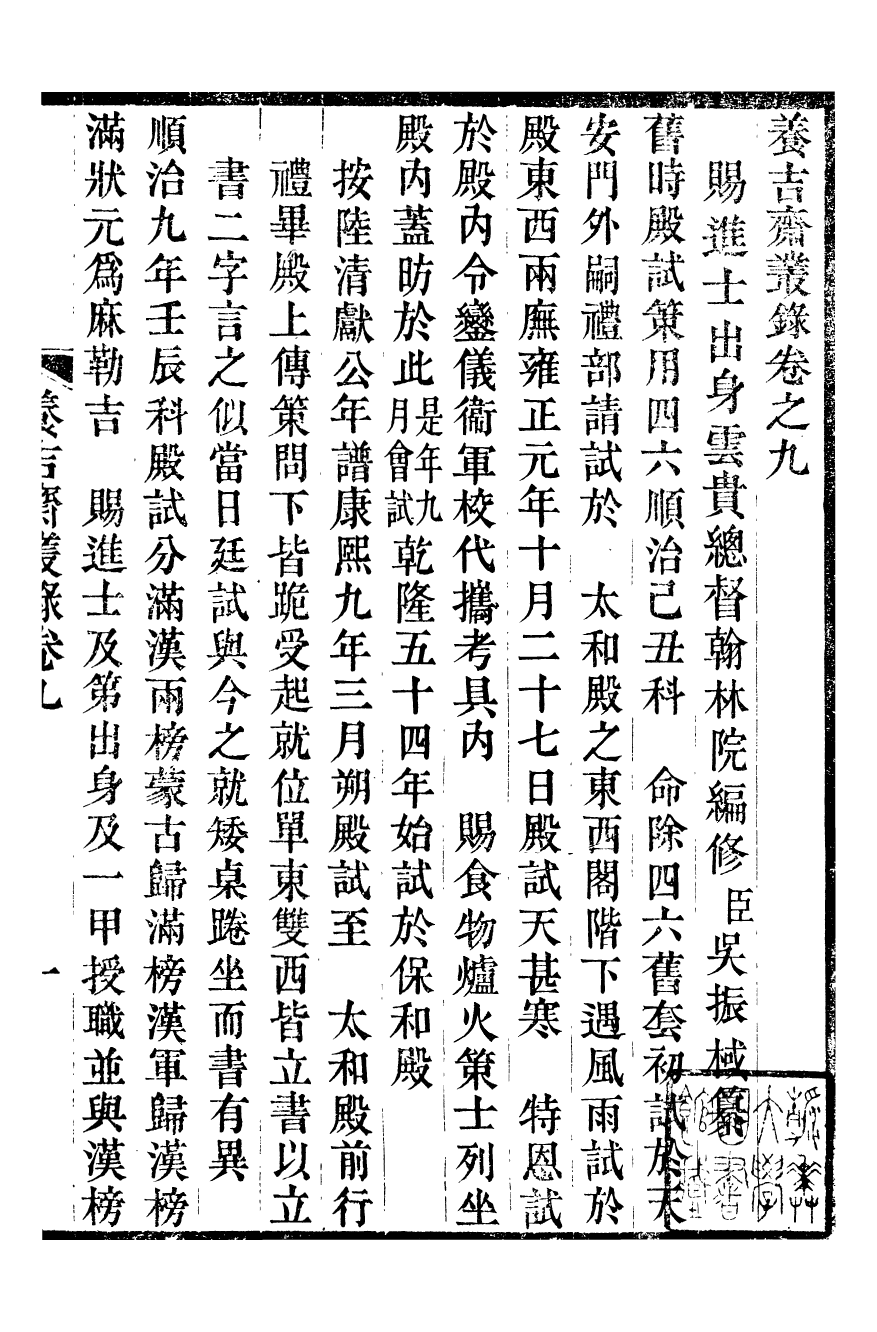 養吉齋叢錄卷之九
賜進士出身雲貴總督翰林院編修臣吳振棫纂
舊時殿試策用四六順治己丑科　命除四六舊套初試於天
安門外嗣禮部請試於　太和殿之東西閣階下遇風雨試於
殿東西兩廡雍正元年十月二十七日殿試天甚寒　特恩試
於殿內令鑾儀衞軍校代攜考具內　賜食物爐火策士列坐
殿內蓋昉於此是年九月會試乾隆五十四年始試於保和殿
按陸清獻公年譜康熙九年三月朔殿試至　太和殿前行
禮畢殿上傳策問下皆跪受起就位單東雙西皆立書以立
書二字言之似當日廷試與今之就矮桌踡坐而書有異
順治九年壬辰科殿試分滿漢兩榜蒙古歸滿榜漢軍歸漢榜
滿狀元爲麻勒吉　賜進士及第出身及一甲授職並與漢榜
養吉齋叢錄卷九
一